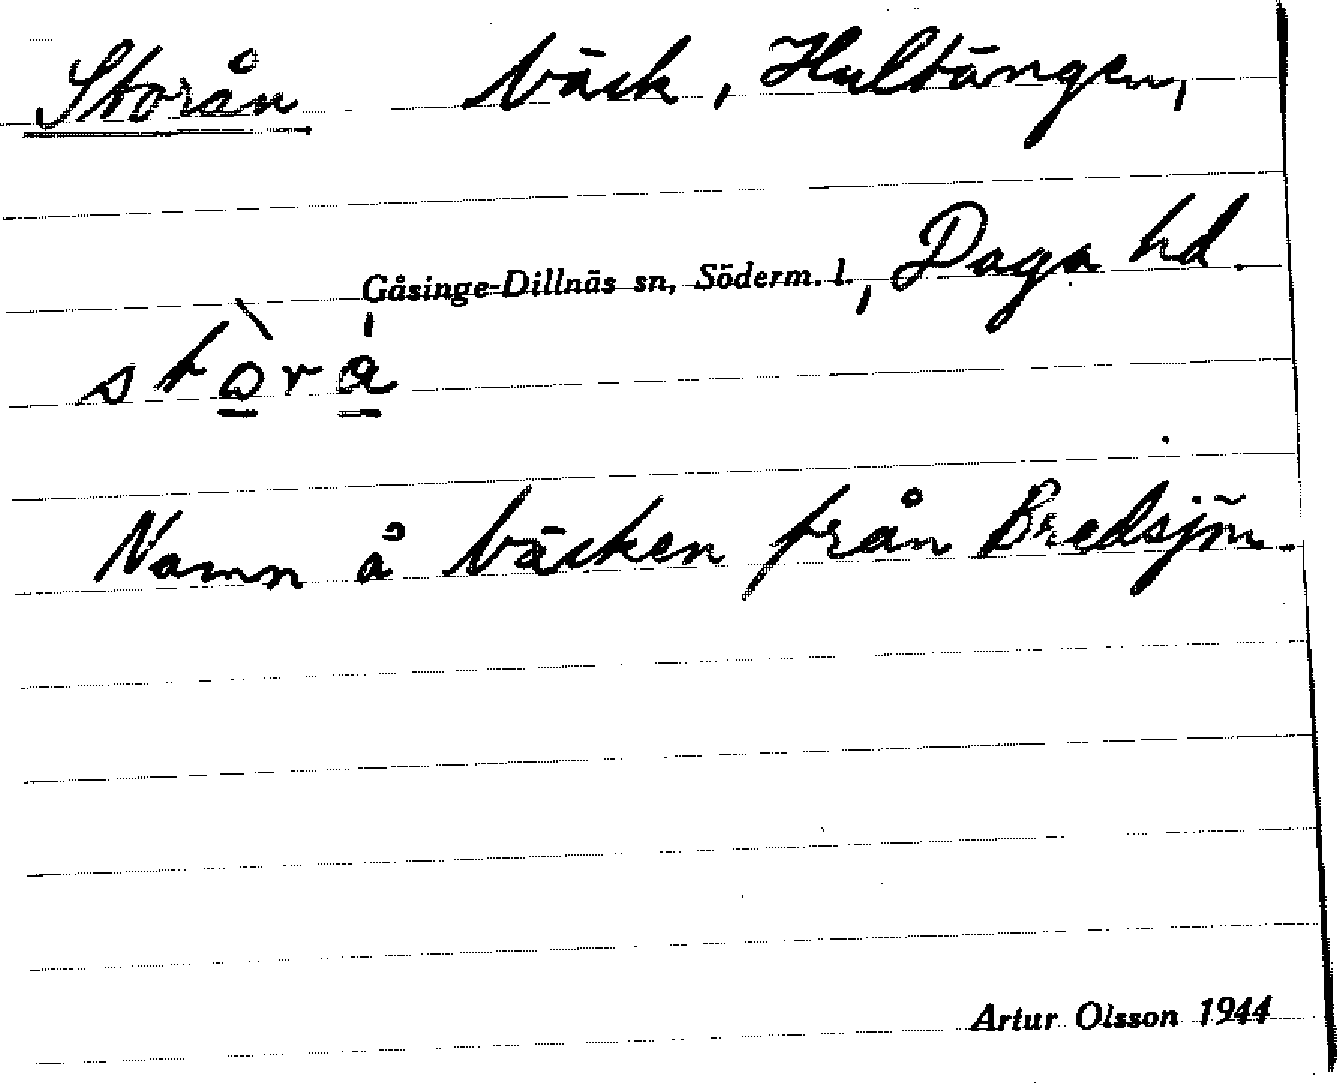 Storån bäck, Hultängen,
Gåsinge-Dillnäs sn, Söderm. l., Daga hd.
stòrá
Namn å bäcken från Bredsjön.
Artur Olsson 1944